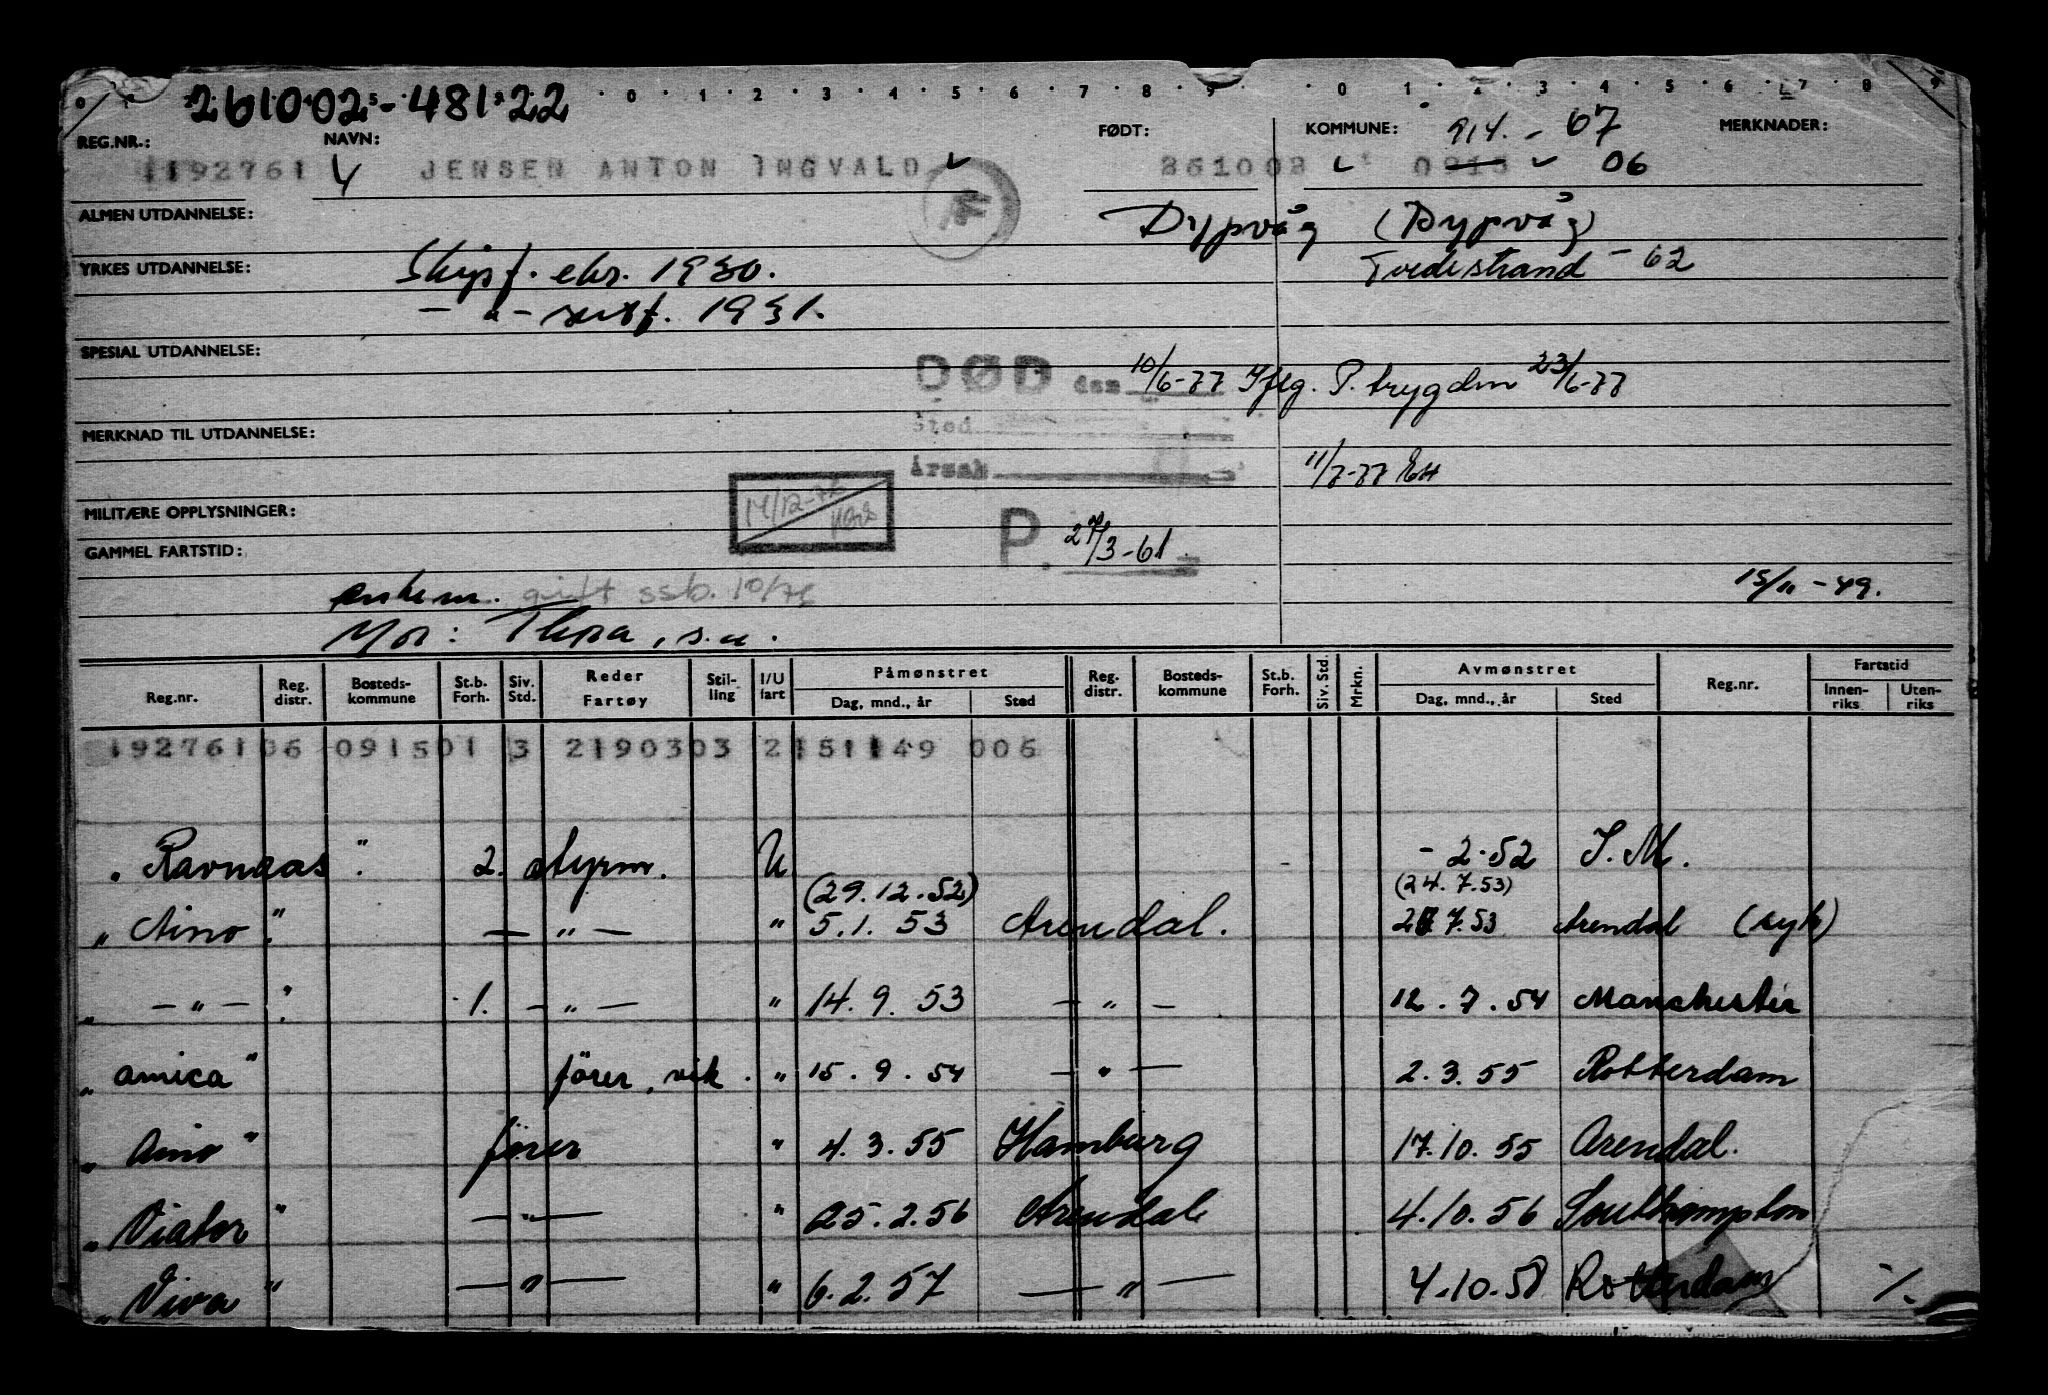 261002 - 48122
0 1 2 3 4 5 6 7 8 9 0 1 2 3 4 5 6 7 8 9
REG.NR.: NAVN: FØDT: KOMMUNE: 914. - 67 MERKNADER:
192761 JENSEN ANTON INGVALD 261002 0915 06
ALMEN UTDANNELSE: Dypvåg (Dypvåg)
YRKES UTDANNELSE: Skipsf. eks. 1930. Tvedestrand - 62
- " - sertf. 1931.
SPESIAL UTDANNELSE:
DØD den 10/6-77 Iflg. P. trygden 23/6-77
Sted
MERKNAD TIL UTDANNELSE:
Årsak 11/7-77 EH
MILITÆRE OPPLYSNINGER:
P. 27/3-61
GAMMEL FARTSTID:
enkem. gift ssb. 10/76 15/11 - 49.
Mor: Thora, s.st.
Reg.nr. Reg. distr. Bosteds-kommune St.b. Forh. Siv. Std. Reder Fartøy Stil-ling I/U fart Påmønstret Dag, mnd., år Sted Reg. distr. Bosteds-kommune St.b. Forh. Siv. Std. Mrkn. Avmønstret Dag, mnd., år Sted Reg.nr. Fartstid Innen-riks Uten-riks
192761 06 0915 01 3 219030 3 2 151149 006
" Ravnaas " 2. styrm. U - 2.52 I. M.
(29.12.52) (24.7.53)
" Aino " - " - " 5.1.53 Arendal. 7.53 Arendal (syk)
" - " - " 1. - " - " 14.9.53 - " - 12.7.54 Manchester
" Amica " fører, vik. " 15.9.54 - " - 2.3.55 Rotterdam
" Aino " fører " 4.3.55 Hamburg 17.10.55 Arendal.
" Viator " - " - " 25.2.56 Arendal 4.10.56 Southampton
" Viva " - " - " 6.2.57 - " - 4.10.58 Rotterdam ./.